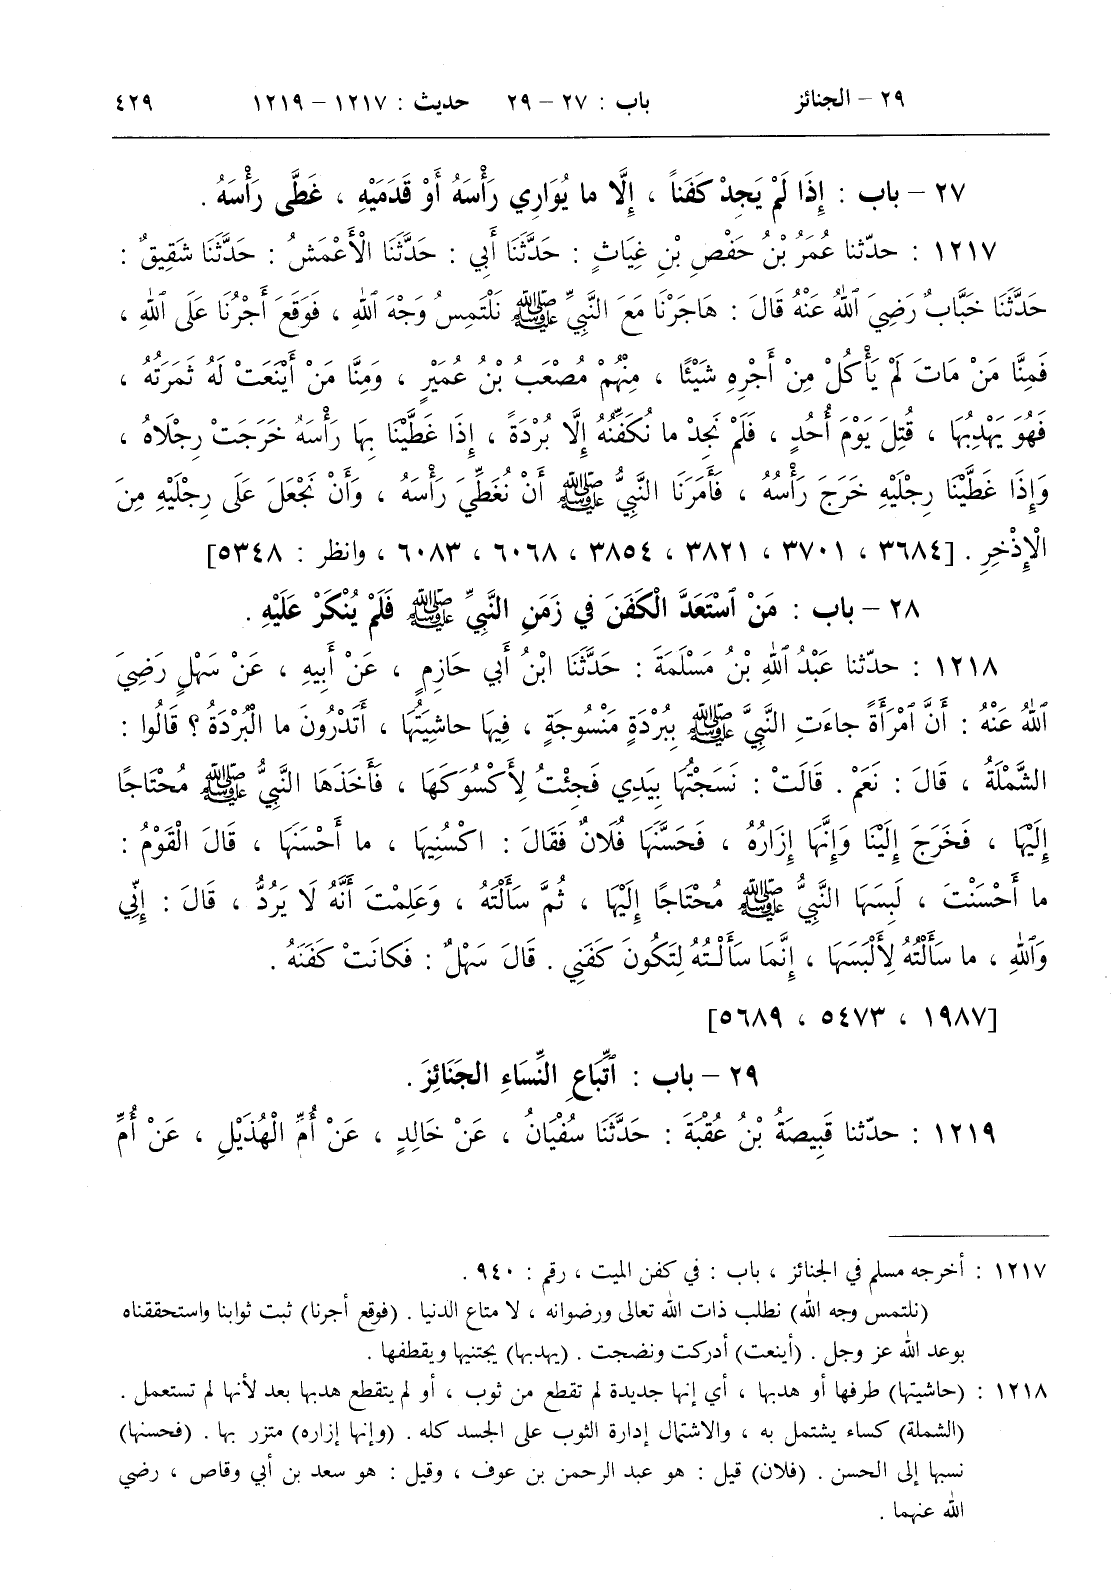 ٢٩ – الجنائز باب : ٢٧ – ٢٩ حديث : ١٢١٧ – ١٢١٩ ٤٢٩
٢٧ – باب : إِذَا لَمْ يَجِدْ كَفَناً ، إِلَّا ما يُوَارِي رَأْسَهُ أَوْ قَدَمَيْهِ ، غَطَّى رَأْسَهُ .
١٢١٧ : حدّثنا عُمَرُ بْنُ حَفْصِ بْنِ غِيَاثٍ : حَدَّثَنَا أَبِي : حَدَّثَنَا الْأَعْمَشُ : حَدَّثَنَا شَقِيقٌ :
حَدَّثَنَا خَبَّابٌ رَضِيَ ٱللهُ عَنْهُ قَالَ : هَاجَرْنَا مَعَ النَّبِيِّ ﷺ نَلْتَمِسُ وَجْهَ ٱللهِ ، فَوَقَعَ أَجْرُنَا عَلَى ٱللهِ ،
فَمِنَّا مَنْ مَاتَ لَمْ يَأْكُلْ مِنْ أَجْرِهِ شَيْئًا ، مِنْهُمْ مُصْعَبُ بْنُ عُمَيْرٍ ، وَمِنَّا مَنْ أَيْنَعَتْ لَهُ ثَمَرَتُهُ ،
فَهُوَ يَهْدِبُهَا ، قُتِلَ يَوْمَ أُحُدٍ ، فَلَمْ نَجِدْ ما نُكَفِّنُهُ إِلَّا بُرْدَةً ، إِذَا غَطَّيْنَا بِهَا رَأْسَهُ خَرَجَتْ رِجْلَاهُ ،
وَإِذَا غَطَّيْنَا رِجْلَيْهِ خَرَجَ رَأْسُهُ ، فَأَمَرَنَا النَّبِيُّ ﷺ أَنْ نُغَطِّيَ رَأْسَهُ ، وَأَنْ نَجْعَلَ عَلَى رِجْلَيْهِ مِنَ
الْإِذْخِرِ . [٣٦٨٤ ، ٣٧٠١ ، ٣٨٢١ ، ٣٨٥٤ ، ٦٠٦٨ ، ٦٠٨٣ ، وانظر : ٥٣٤٨]
٢٨ – باب : مَنْ ٱسْتَعَدَّ الْكَفَنَ فِي زَمَنِ النَّبِيِّ ﷺ فَلَمْ يُنْكَرْ عَلَيْهِ .
١٢١٨ : حدّثنا عَبْدُ ٱللهِ بْنُ مَسْلَمَةَ : حَدَّثَنَا ابْنُ أَبِي حَازِمٍ ، عَنْ أَبِيهِ ، عَنْ سَهْلٍ رَضِيَ
ٱللهُ عَنْهُ : أَنَّ ٱمْرَأَةً جاءَتِ النَّبِيَّ ﷺ بِبُرْدَةٍ مَنْسُوجَةٍ ، فِيهَا حاشِيَتُهَا ، أَتَدْرُونَ ما الْبُرْدَةُ ؟ قَالُوا :
الشَّمْلَةُ ، قَالَ : نَعَمْ . قَالَتْ : نَسَجْتُهَا بِيَدِي فَجِئْتُ لِأَكْسُوَكَهَا ، فَأَخَذَهَا النَّبِيُّ ﷺ مُحْتَاجًا
إِلَيْهَا ، فَخَرَجَ إِلَيْنَا وَإِنَّهَا إِزَارُهُ ، فَحَسَّنَهَا فُلَانٌ فَقَالَ : اكْسُنِيهَا ، ما أَحْسَنَهَا ، قَالَ الْقَوْمُ :
ما أَحْسَنْتَ ، لَبِسَهَا النَّبِيُّ ﷺ مُحْتَاجًا إِلَيْهَا ، ثُمَّ سَأَلْتَهُ ، وَعَلِمْتَ أَنَّهُ لَا يَرُدُّ ، قَالَ : إِنِّي
وَٱللهِ ، ما سَأَلْتُهُ لِأَلْبَسَهَا ، إِنَّمَا سَأَلْتُهُ لِتَكُونَ كَفَنِي . قَالَ سَهْلٌ : فَكانَتْ كَفَنَهُ .
[١٩٨٧ ، ٥٤٧٣ ، ٥٦٨٩]
٢٩ – باب : ٱتِّبَاعِ النِّسَاءِ الجَنَائِزَ .
١٢١٩ : حدّثنا قَبِيصَةُ بْنُ عُقْبَةَ : حَدَّثَنَا سُفْيَانُ ، عَنْ خَالِدٍ ، عَنْ أُمِّ الْهُذَيْلِ ، عَنْ أُمِّ
١٢١٧ : أخرجه مسلم في الجنائز ، باب : في كفن الميت ، رقم : ٩٤٠ .
(نلتمس وجه الله) نطلب ذات الله تعالى ورضوانه ، لا متاع الدنيا . (فوقع أجرنا) ثبت ثوابنا واستحققناه
بوعد الله عز وجل . (أينعت) أدركت ونضجت . (يهدبها) يجتنيها ويقطفها .
١٢١٨ : (حاشيتها) طرفها أو هدبها ، أي إنها جديدة لم تقطع من ثوب ، أو لم يتقطع هدبها بعد لأنها لم تستعمل .
(الشملة) كساء يشتمل به ، والاشتمال إدارة الثوب على الجسد كله . (وإنها إزاره) متزر بها . (فحسنها)
نسبها إلى الحسن . (فلان) قيل : هو عبد الرحمن بن عوف ، وقيل : هو سعد بن أبي وقاص ، رضي
الله عنهما .